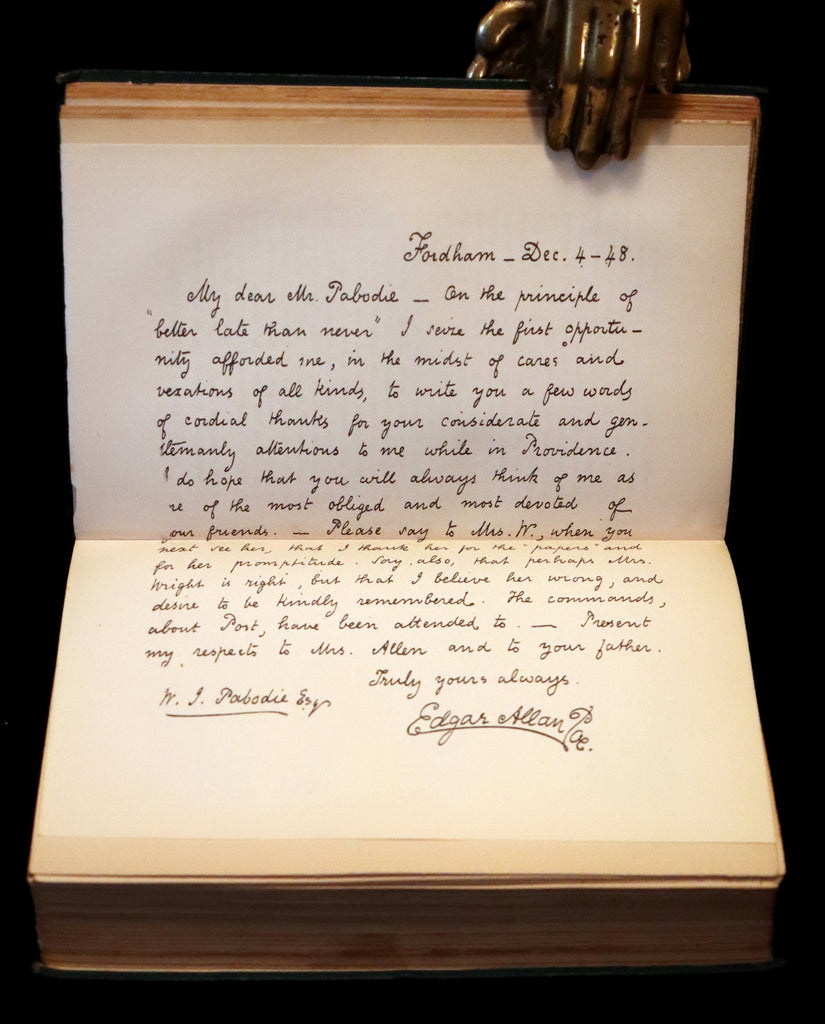 Fordham – Dec. 4 – 48.
My dear Mr. Pabodie – On the principle of
"better late than never" I seize the first opportu–
nity afforded me, in the midst of cares and
vexations of all kinds, to write you a few words
of cordial thanks for your considerate and gen-
tlemanly attentions to me while in Providence.
I do hope that you will always think of me as
re of the most obliged and most devoted of
our friends. — Please say to Mrs. W., when you
next see her, that I thank her for the "papers" and
for her promptitude. Say, also, that perhaps Mrs.
Wright is right, but that I believe her wrong, and
desire to be kindly remembered. The commands,
about Post, have been attended to. — Present
my respects to Mrs. Allen and to your father.
Truly yours always.
W. J. Pabodie Esqr
Edgar Allan Poe.